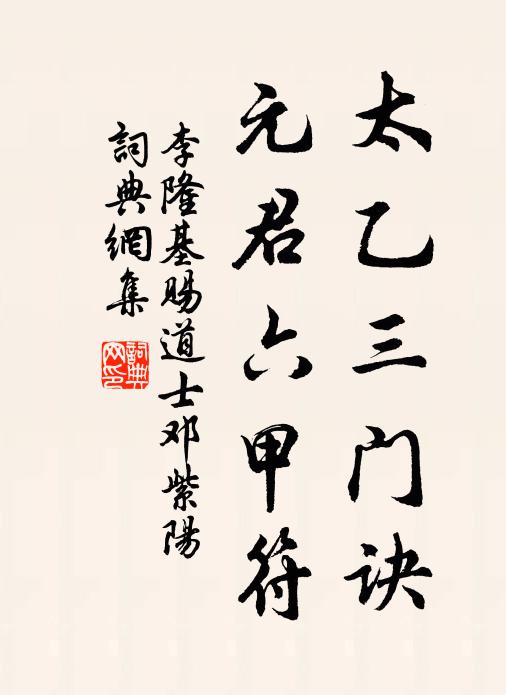 太乙三门诀
元君六甲符
李隆基赐道士邓紫陽
詞典網集
詞典
网印